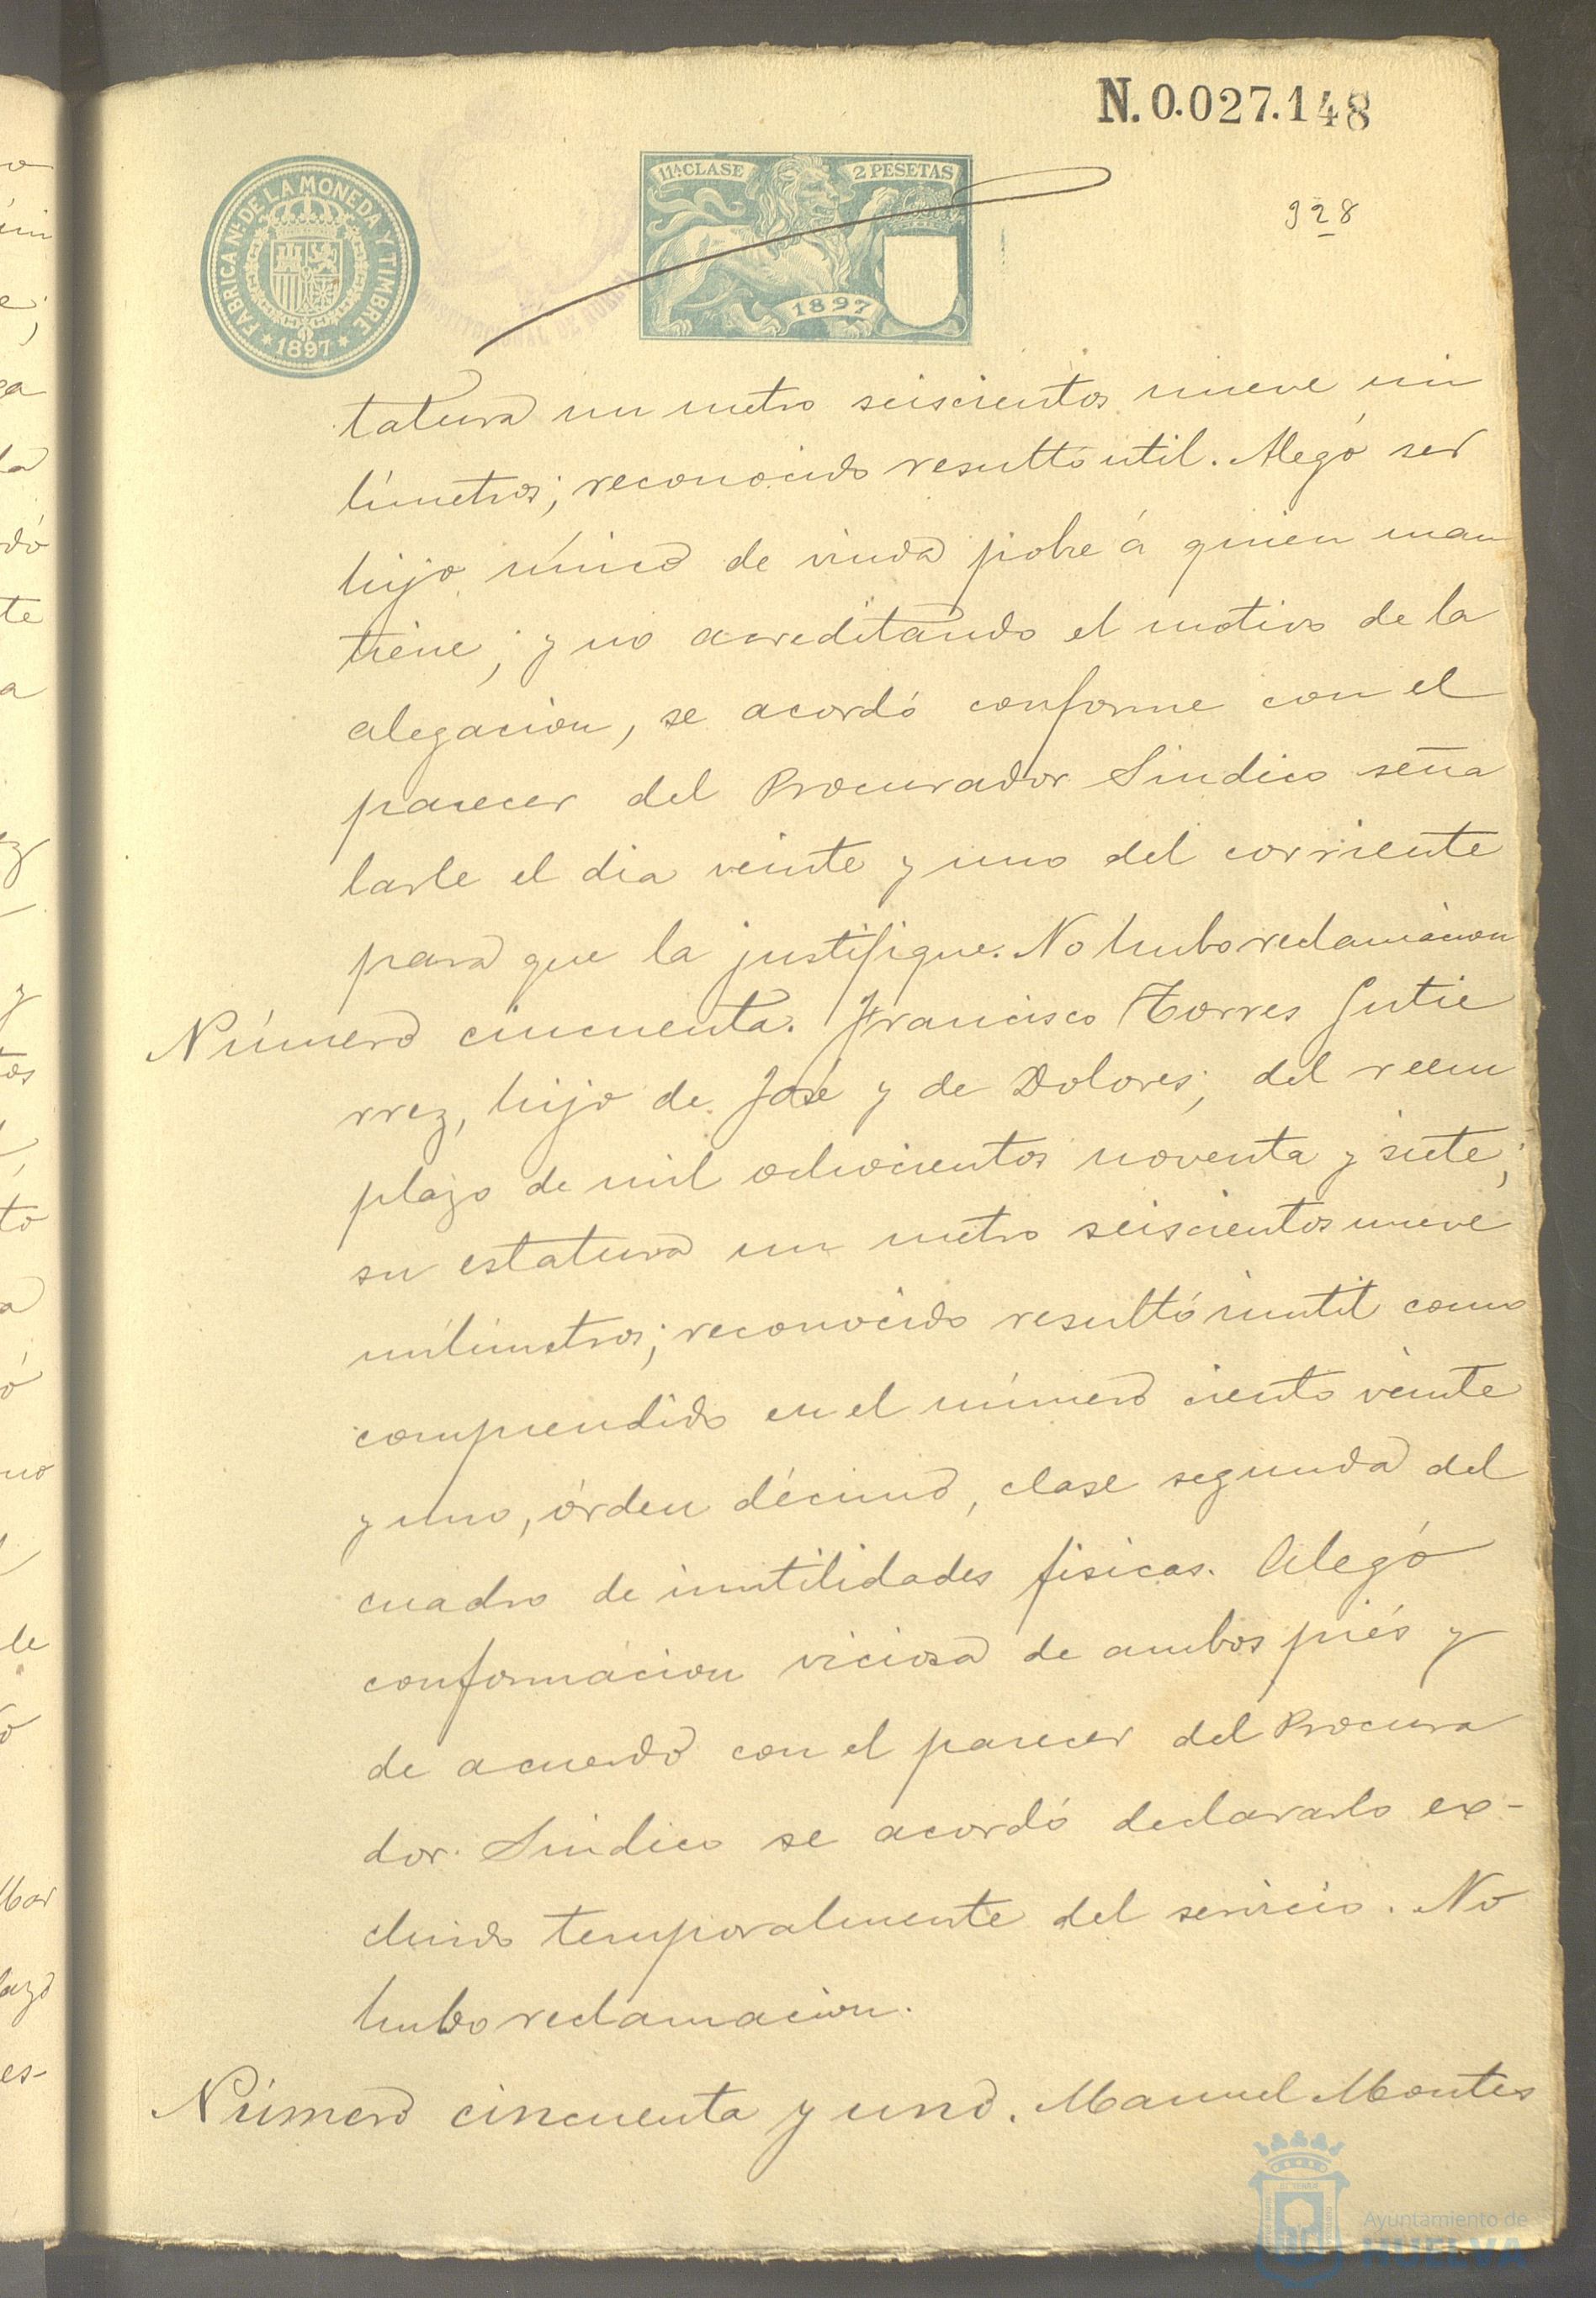 N.0.027.148
FABRICA Nal. DE LA MONEDA Y TIMBRE
* 1897 *
11ª CLASE
2 PESETAS
1897
928
tatura un metro seiscientos nueve mi
límetros; reconocido resultó util. Alegó ser
hijo único de viuda pobre á quien man
tiene; y no acreditando el motivo de la
alegacion, se acordó conforme con el
parecer del Procurador Sindico seña
larle el dia veinte y uno del corriente
para que la justifique. No hubo reclamacion
Número cincuenta. Francisco Torres Gutie
rrez, hijo de José y de Dolores; del reem
plazo de mil ochocientos noventa y siete;
su estatura un metro seiscientos nueve
milímetros; reconocido resultó inutil como
comprendido en el número ciento veinte
y uno, órden décimo, clase segunda del
cuadro de inutilidades fisicas. Alegó
conformacion viciosa de ambos piés y
de acuerdo con el parecer del Procura
dor Sindico se acordó declararlo ex-
cluido temporalmente del servicio. No
hubo reclamacion.
Número cincuenta y uno. Manuel Montes
Ayuntamiento de
HUELVA